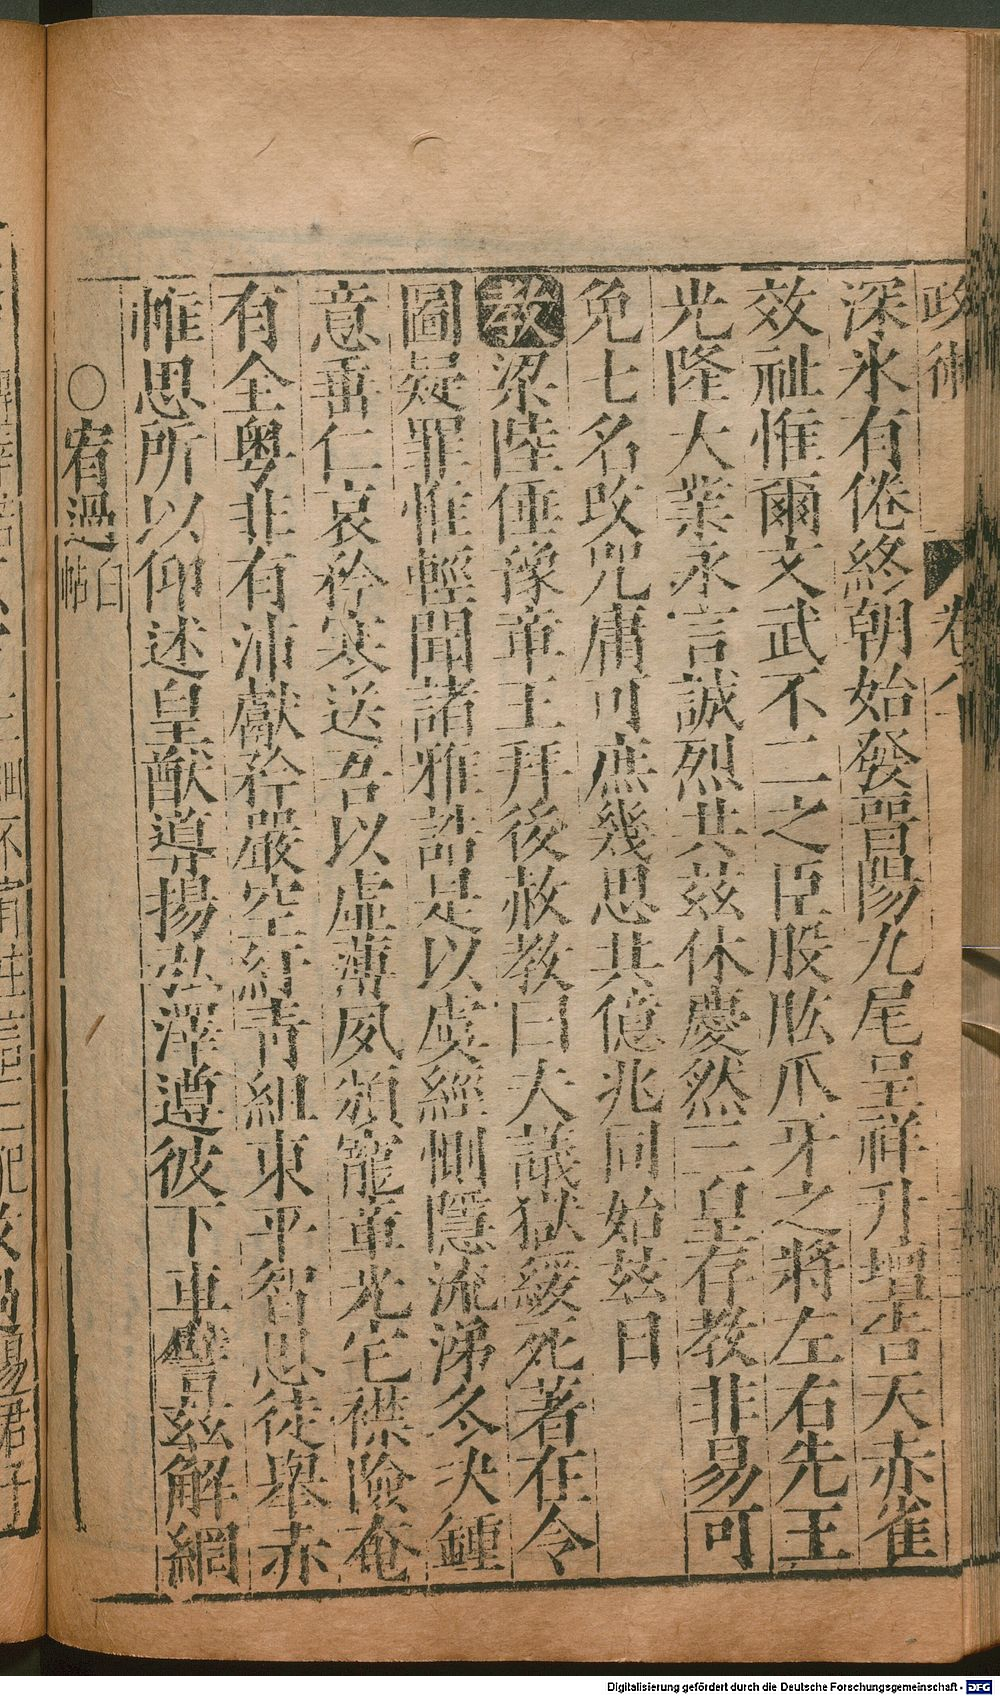 政術 卷八
深氷有倦終朝始發晋陽九尾呈祥升壇告天赤雀
效祉惟爾文武不二之臣股肱爪牙之將左右先王
光隆大業永言誠烈共茲休慶然三皇存教非易可
免七名改咒庸可庶幾思共億兆同始茲日
教梁陸倕豫章王拜後赦教曰大議獄緩死著在令
圖疑罪惟輕聞諸雅誥是以虞經惻隱流涕冬決鍾
意垂仁哀矜寒送吾以虛薄夙頒寵章光宅襟險奄
有全粵非有沛獻矜嚴空紆青組東平智思徒舉赤
帷思所以仰述皇猷導揚弘澤遵彼下車譬茲解網
○宥過白帖
Digitalisierung gefördert durch die Deutsche Forschungsgemeinschaft - DFG